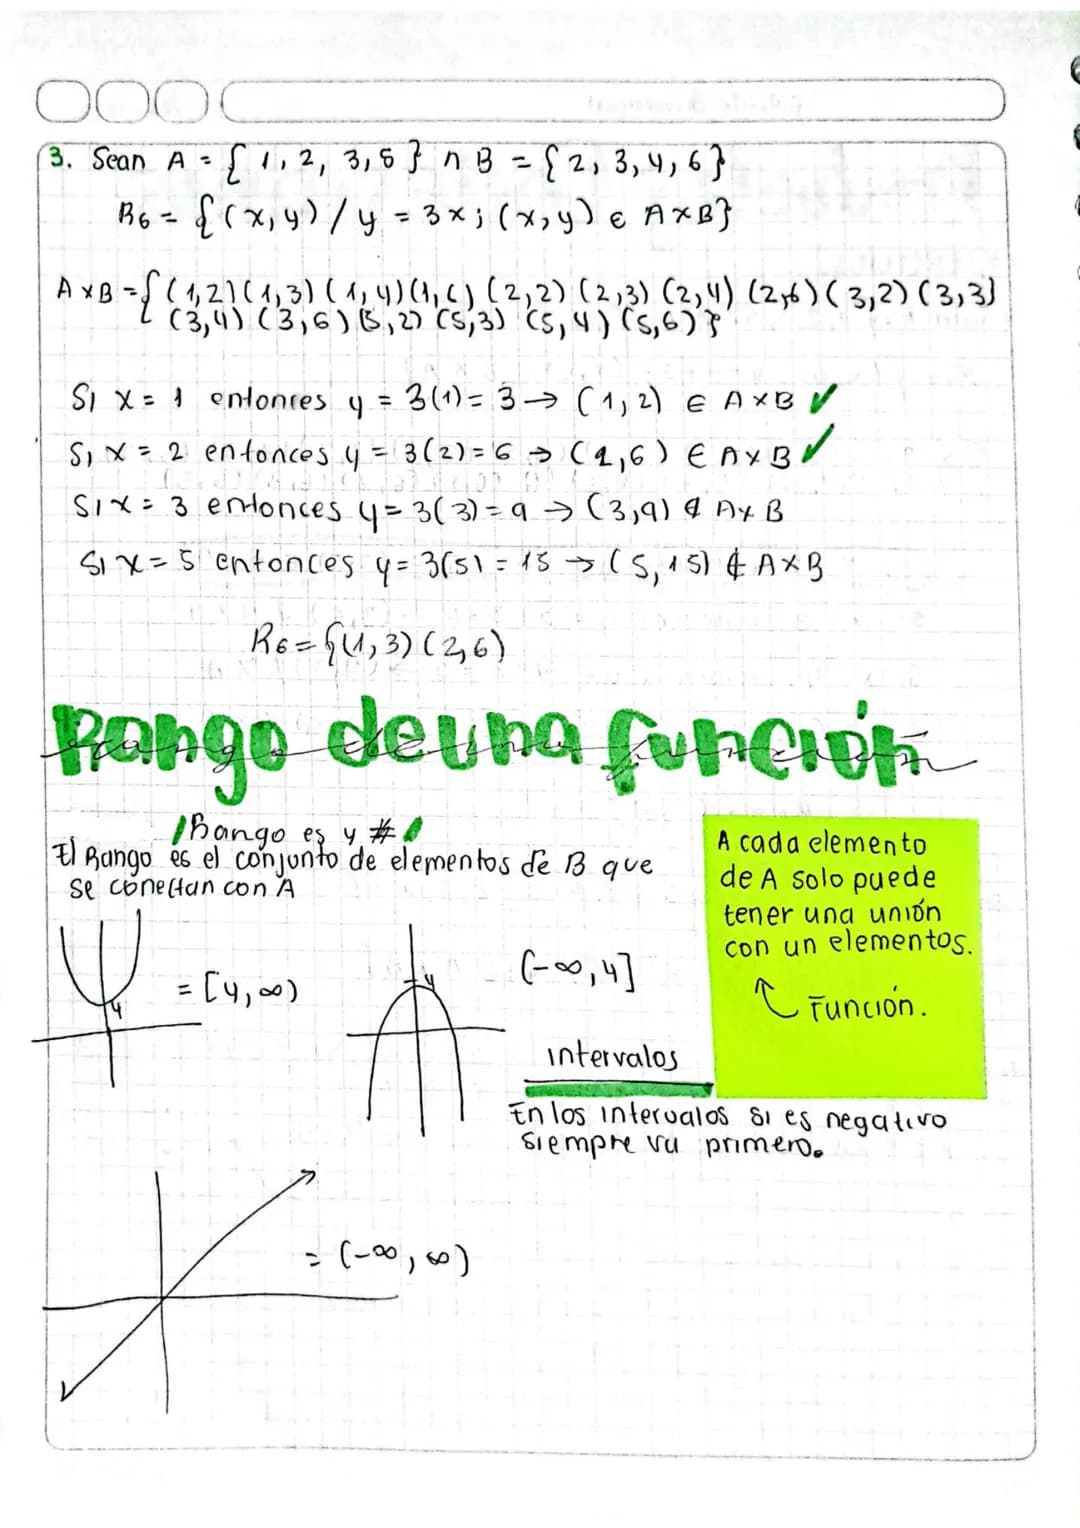 3. Sean A = { 1, 2, 3, 5 } n B = { 2, 3, 4, 6 }
R6 = { (x, y) / y = 3x ; (x, y) ∈ A×B }
A×B = { (1,2) (1,3) (1,4) (1,6) (2,2) (2,3) (2,4) (2,6) (3,2) (3,3)
(3,4) (3,6) (5,2) (5,3) (5,4) (5,6) }
Si x = 1 entonces y = 3(1) = 3 → (1, 2) ∈ A×B ✓
Si x = 2 entonces y = 3(2) = 6 → (2,6) ∈ A×B ✓
Si x = 3 entonces y = 3(3) = 9 → (3,9) ∉ A×B
Si x = 5 entonces y = 3(5) = 15 → (5, 15) ∉ A×B
R6 = { (1, 3) (2, 6)
Rango de una función
Rango de una función
/Rango es y #/
El Rango es el conjunto de elementos de B que
se conectan con A
A cada elemento
de A solo puede
tener una unión
con un elementos.
Función.
4
= [4, ∞)
4
(-∞, 4]
intervalos
En los intervalos si es negativo
siempre va primero.
= (-∞, ∞)